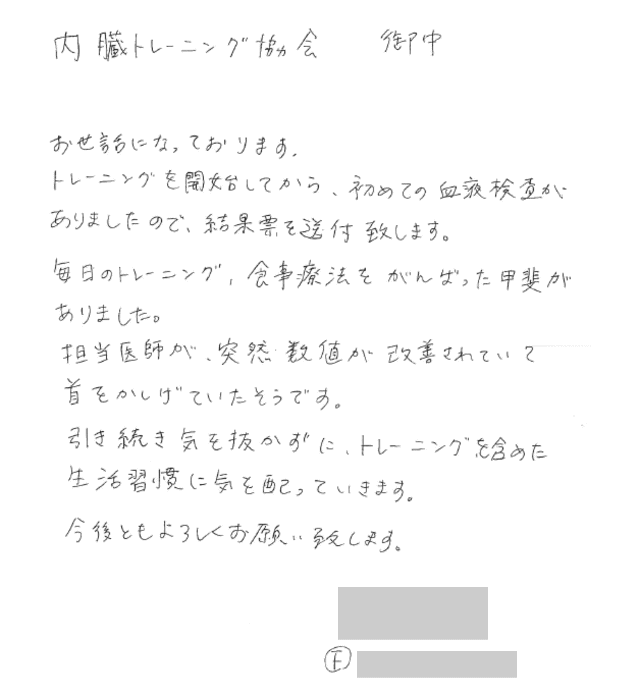 内臓トレーニング協会 御中
お世話になっております.
トレーニングを開始してから、初めての血液検査が
ありましたので、結果票を送付致します。
毎日のトレーニング、食事療法をがんばった甲斐が
ありました。
担当医師が、突然数値が改善されていて
首をかしげていたそうです。
引き続き気を抜かずに、トレーニングを含めた
生活習慣に気を配っていきます。
今後ともよろしくお願い致します。